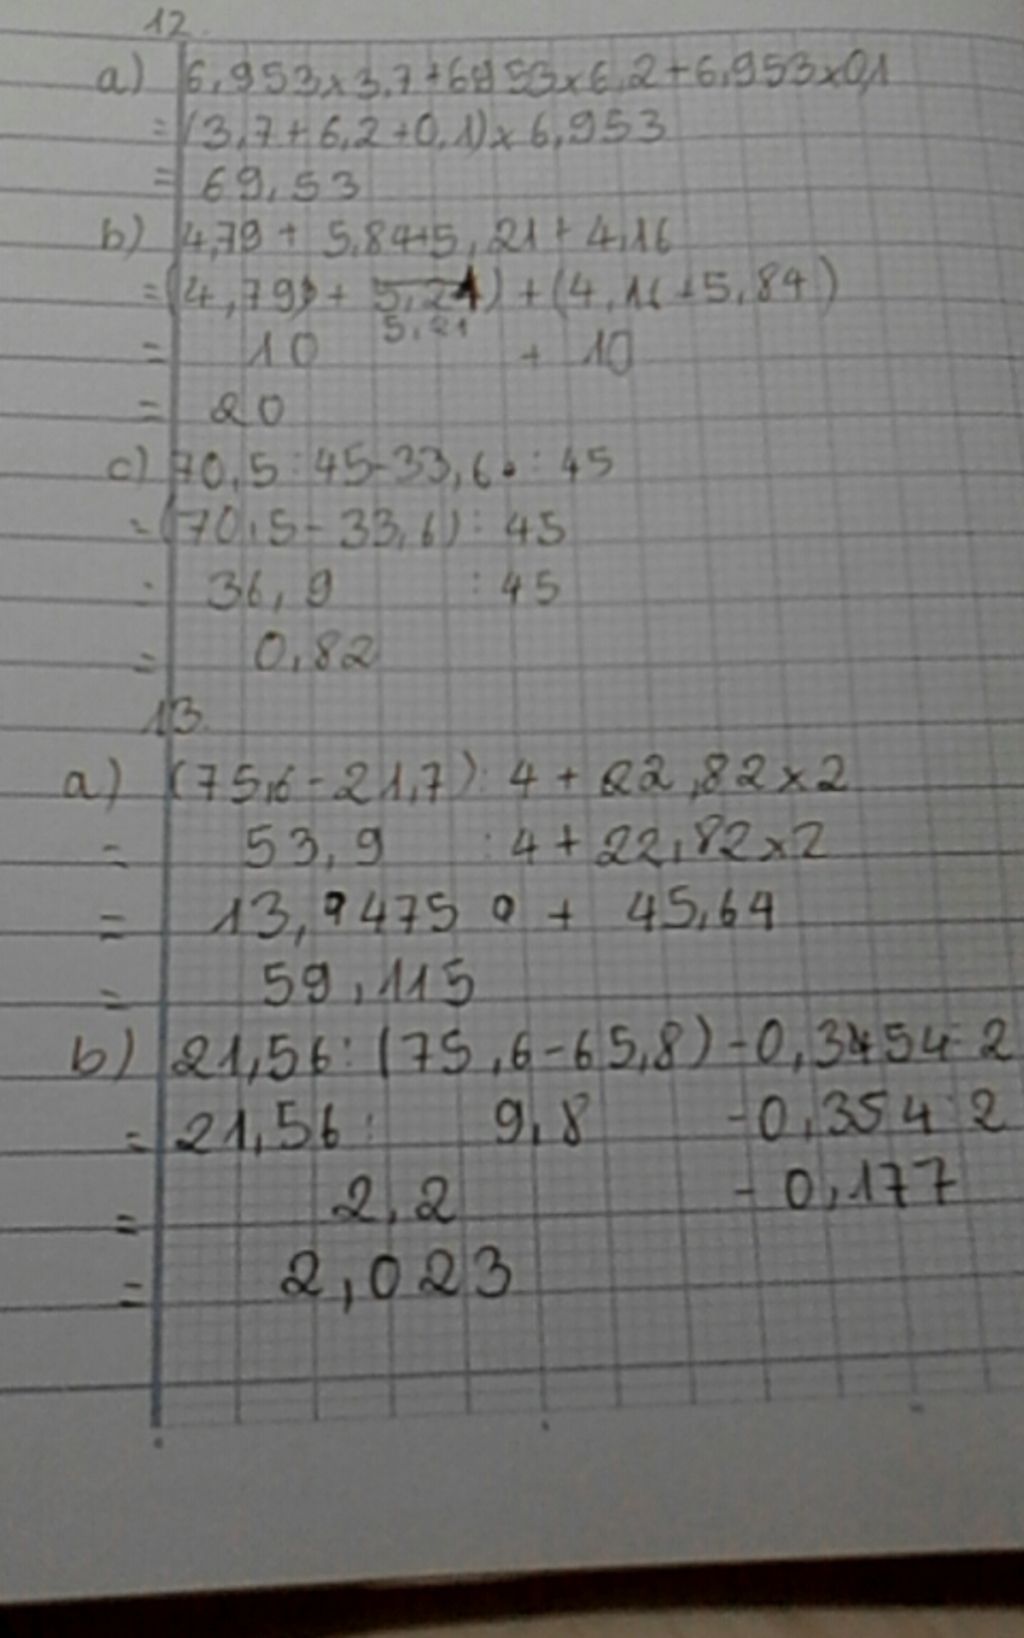 12.
a) 6,953 x 3,7 + 6,953 x 6,2 + 6,953 x 0,1
= (3,7 + 6,2 + 0,1) x 6,953
= 69,53
b) 4,79 + 5,84 + 5,21 + 4,16
= (4,79 + 5,21) + (4,16 + 5,84)
5,21
= 10 + 10
= 20
c) 70,5 : 45 - 33,6 : 45
= (70,5 - 33,6) : 45
= 36,9 : 45
= 0,82
13.
a) (75,6 - 21,7) : 4 + 22,82 x 2
= 53,9 : 4 + 22,82 x 2
= 13,475 + 45,64
= 59,115
b) 21,56 : (75,6 - 65,8) - 0,354 : 2
= 21,56 : 9,8 - 0,354 : 2
= 2,2 - 0,177
= 2,023